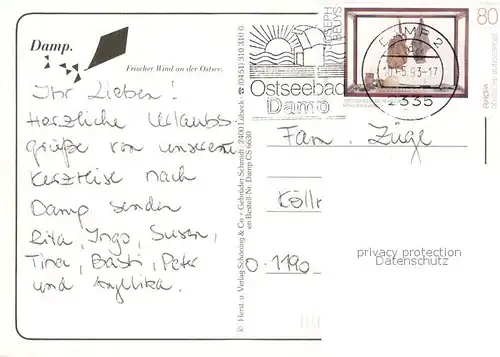 Damp.
Frischer Wind an der Ostsee.
Ihr Lieben!
Herzliche Urlaubs-
grüße von unserer
Kurzreise nach
Damp senden
Rita, Ingo, Susen,
Tina, Basti, Peter
und Angelika.
© Herst. u. Verlag Schöning & Co + Gebrüder Schmidt · 2400 Lübeck · ☎ (0451) 310 310 0
en Bestell-Nr. Damp CS 6630
Ostseebad
Damp
DAMP 2
-5.93-17
2335
JOSEPH BEUYS
80
DEUTSCHE BUNDESPOST
EUROPA
Fam. Züge
Kölln
O-1190
privacy protection
Datenschutz